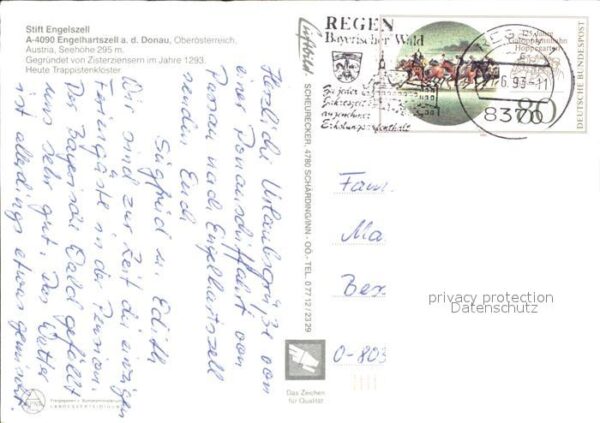 Stift Engelszell
A-4090 Engelhartszell a. d. Donau, Oberösterreich.
Austria, Seehöhe 295 m.
Gegründet von Zisterziensern im Jahre 1293.
Heute Trappistenkloster
Herzliche Urlaubsgrüße von
einer Donauschiffahrt von
Passau nach Engelhartszell
senden Euch
Siegfried u. Edith
Wir sind zur Zeit die einzigen
Feriengäste in der Pension.
Der Bayerische Wald gefällt
uns sehr gut. Das Wetter
ist allerdings etwas gemischt.
Luftbild SCHEURECKER, 4780 SCHÄRDING/INN - OÖ - TEL. 0 77 12 / 23 29
REGEN
Bayerischer Wald
Zu jeder
Jahreszeit
angenehmer
Erholungsaufenthalt
125 Jahre
Galopprennbahn
Hoppegarten
80
DEUTSCHE BUNDESPOST
REGEN
6.93-11
8370
Fam.
Ma
Bex
O-803
privacy protection
Datenschutz
Das Zeichen
für Qualität